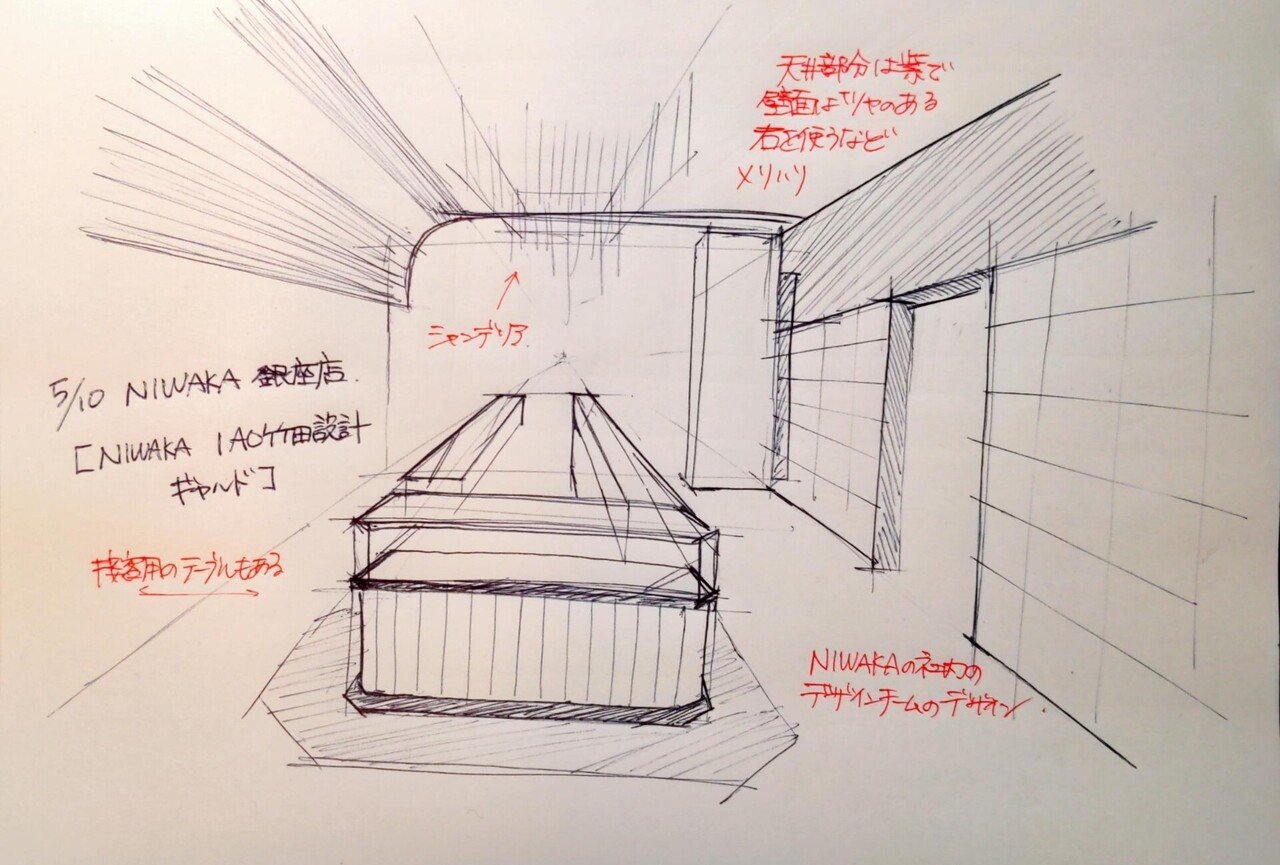 天井部分は紫で
壁面はツヤのある
石を使うなど
メリハリ
シャンデリア.
5/10 NIWAKA 銀座店.
[NIWAKA IAO竹田設計
ギャルド]
接客用のテーブルもある
NIWAKAの社内の
デザインチームのデザイン.